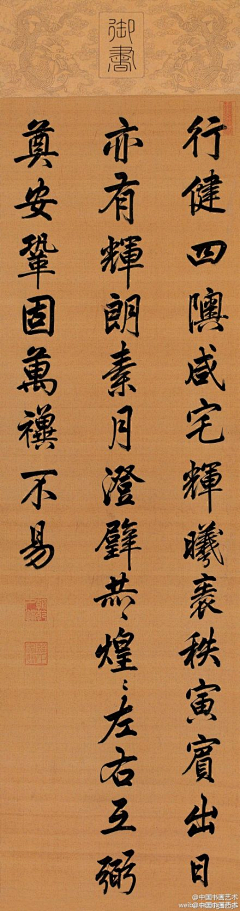 御書
行健四隩咸宅輝曦秩寅賓出日
亦有輝朗素月澄璧煌〻左右互弼
奠安鞏固萬禩不易
@中国书画艺术